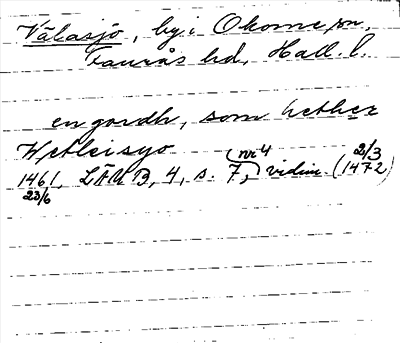 Välasjö, by i Okome sn,
Faurås hd, Hall. l.
en gordh, som hether
Wetleisyo
1461 23/6, LÄU B, 4, s. 7, (nr 4) vidim. (2/3 1472)